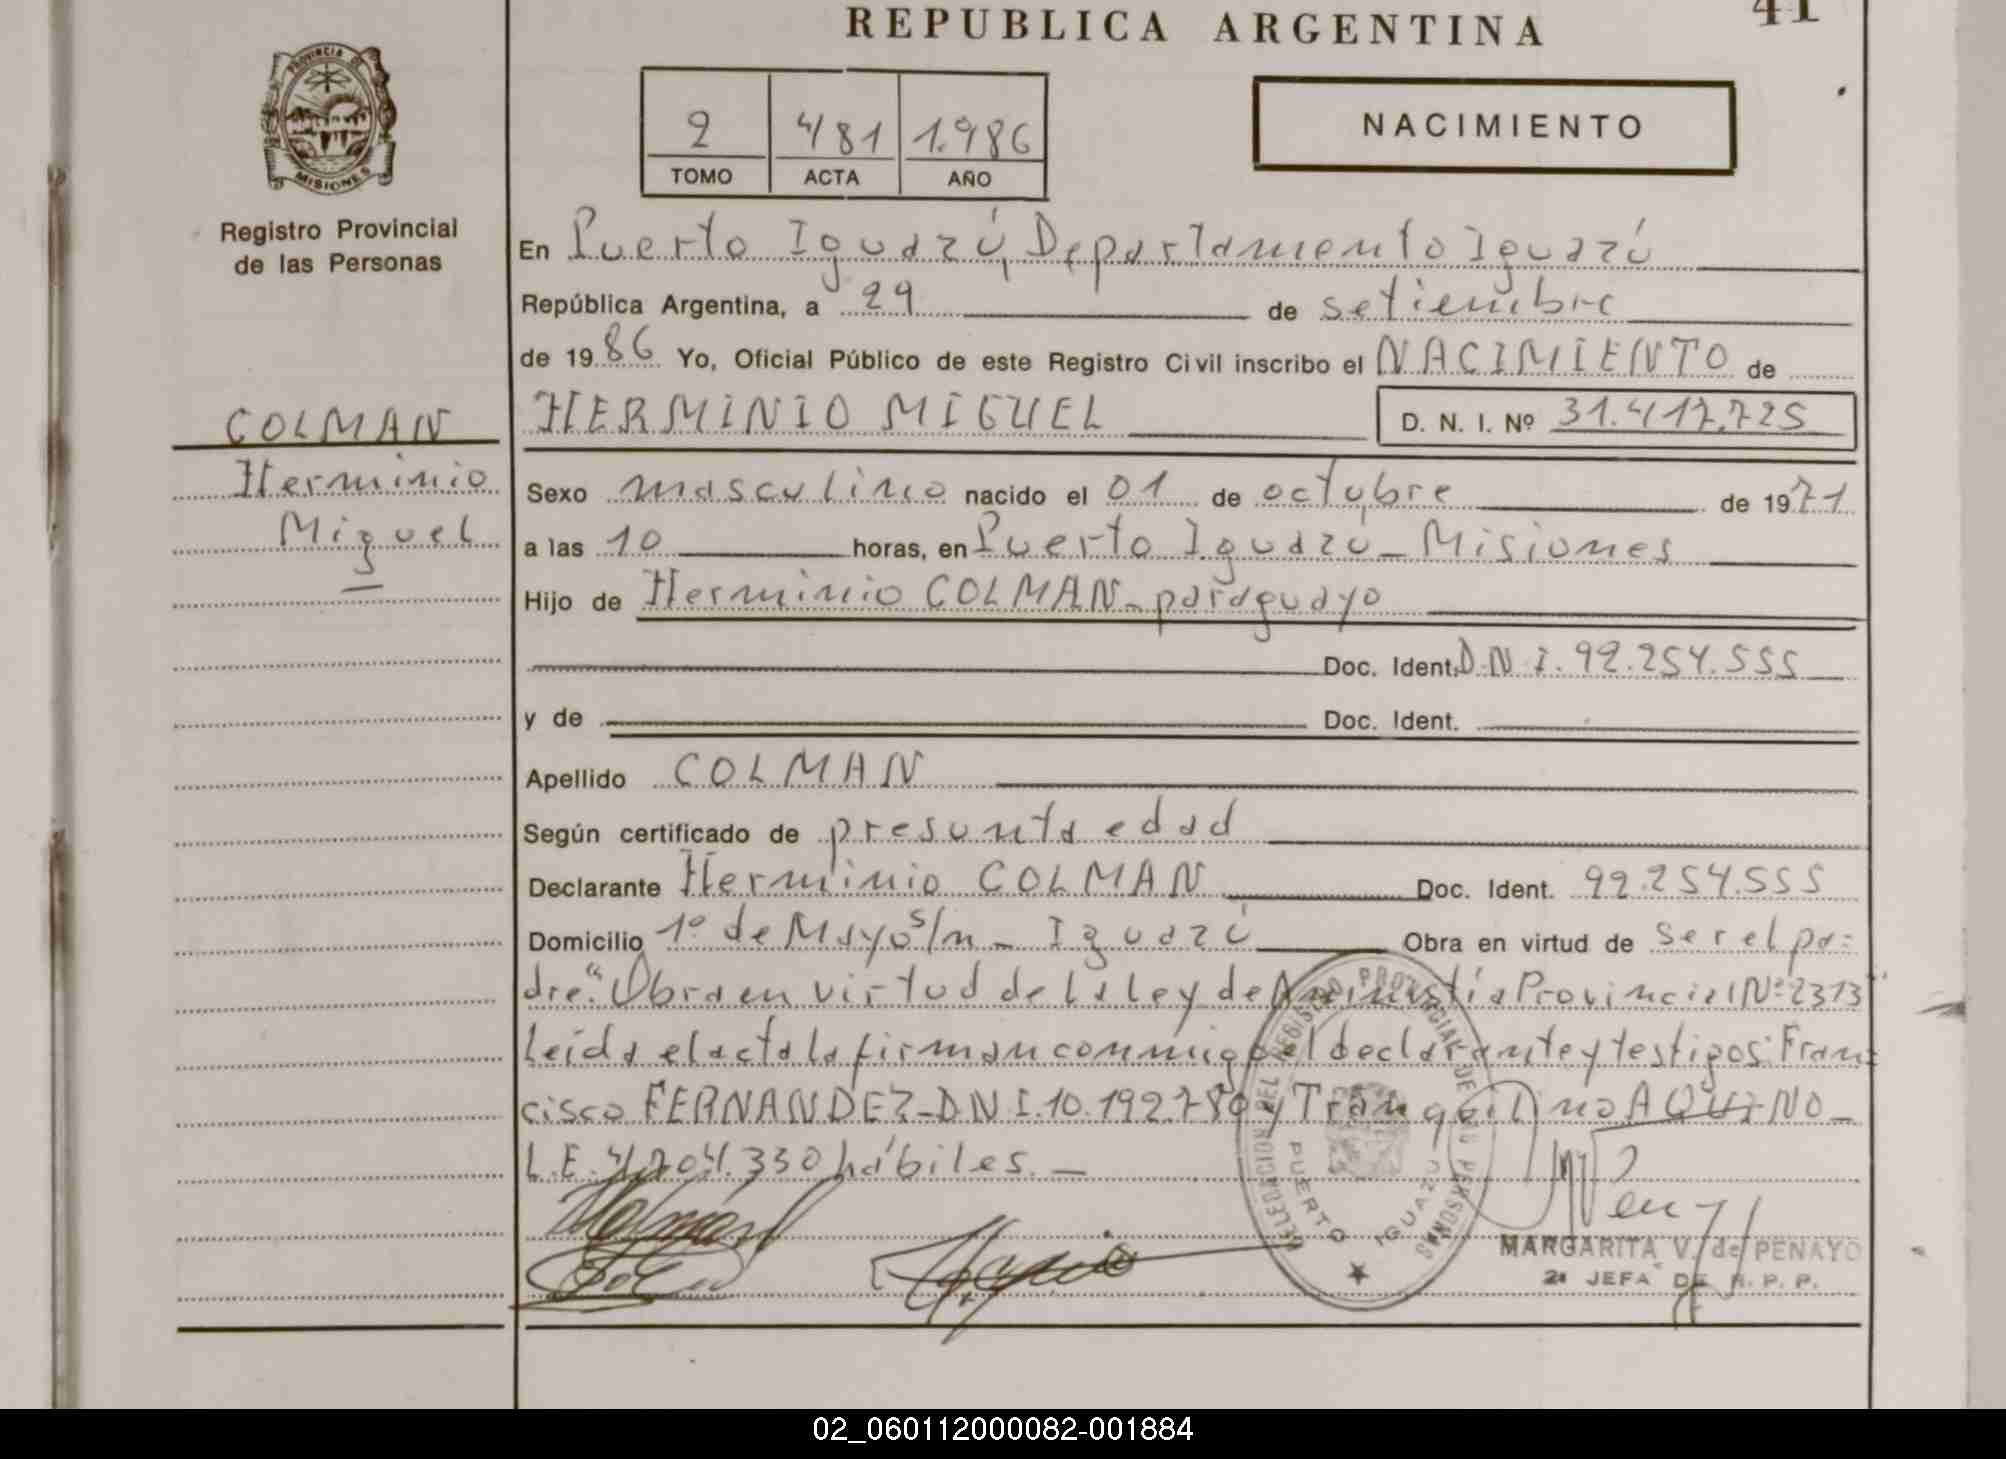 REPUBLICA ARGENTINA
41
PROVINCIA DE
MISIONES
Registro Provincial
de las Personas
2 481 1.986
TOMO ACTA AÑO
NACIMIENTO
En Puerto Iguazú, Departamento Iguazú
República Argentina, a 29 de setiembre
de 1986 Yo, Oficial Público de este Registro Civil inscribo el NACIMIENTO de
COLMAN
Herminio
Miguel
HERMINIO MIGUEL D. N. I. Nº 31.417.725
Sexo masculino nacido el 01 de octubre de 1971
a las 10 horas, en Puerto Iguazú - Misiones
Hijo de Herminio COLMAN - paraguayo
Doc. Ident. D.N.I. 92.254.555
y de Doc. Ident.
Apellido COLMAN
Según certificado de presunta edad
Declarante Herminio COLMAN Doc. Ident. 92.254.555
Domicilio 1º de Mayo s/n - Iguazú Obra en virtud de ser el pa-
dre. "Obra en virtud de la Ley de Amnistía Provincial Nº 2313"
Leída el acta la firman conmigo el declarante y testigos: Fran-
cisco FERNANDEZ - D.N.I. 10.192.780 y Tranquilino AQUINO -
L.E. 4.704.330 hábiles. -
DELEGACION DEL REGISTRO PROVINCIAL DE LAS PERSONAS
PUERTO IGUAZU
MARGARITA V. de PENAYO
2ª JEFA DE R. P. P.
02_060112000082-001884